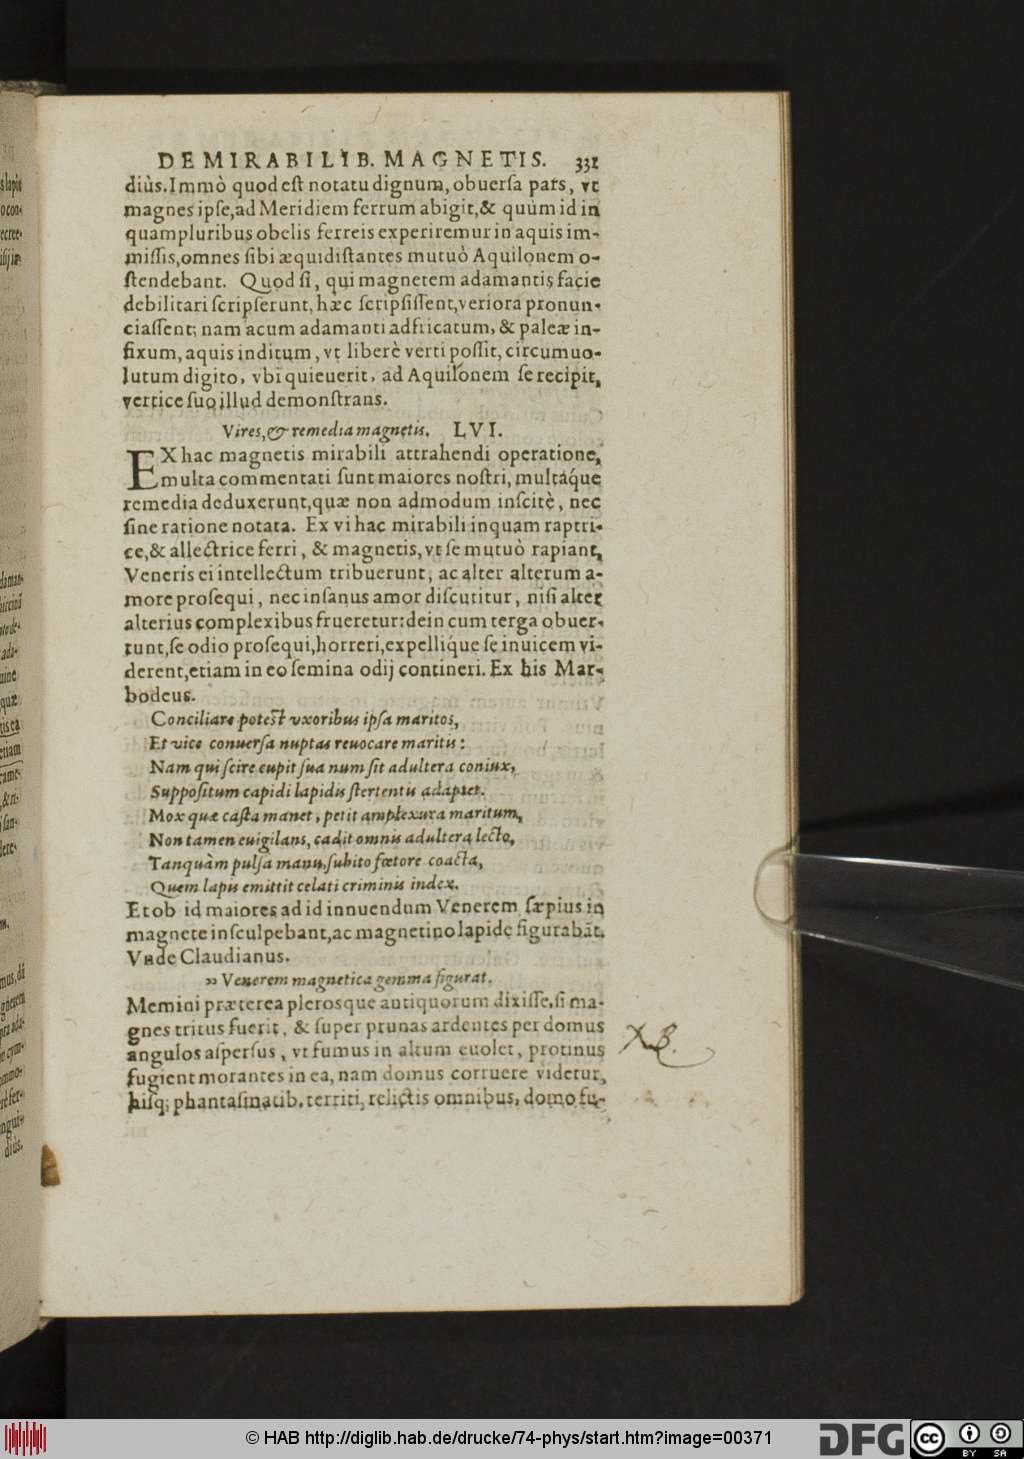 DE MIRABILIB. MAGNETIS. 331
diùs. Immò quod est notatu dignum, obuersa pars, vt
magnes ipse, ad Meridiem ferrum abigit, & quùm id in
quampluribus obelis ferreis experiremur in aquis im-
missis, omnes sibi æquidistantes mutuò Aquilonem o-
stendebant. Quod si, qui magnetem adamantis facie
debilitari scripserunt, hæc scripsissent, veriora pronun-
ciassent; nam acum adamanti adfricatum, & paleæ in-
fixum, aquis inditum, vt liberè verti possit, circumuo-
lutum digito, vbi quieuerit, ad Aquilonem se recipit,
vertice suo illud demonstrans.
Vires, & remedia magnetis. LVI.
EX hac magnetis mirabili attrahendi operatione,
multa commentati sunt maiores nostri, multáque
remedia deduxerunt, quæ non admodum inscitè, nec
sine ratione notata. Ex vi hac mirabili inquam raptri-
ce, & allectrice ferri, & magnetis, vt se mutuò rapiant,
Veneris ei intellectum tribuerunt, ac alter alterum a-
more prosequi, nec insanus amor discutitur, nisi alter
alterius complexibus frueretur: dein cum terga obuer-
runt, se odio prosequi, horreri, expellíque se inuicem vi-
derent, etiam in eo semina odij contineri. Ex his Mar-
bodeus.
Conciliare potest vxoribus ipsa maritos,
Et vice conuersa nuptas reuocare maritis:
Nam qui scire cupit sua num sit adultera coniux,
Suppositum capidi lapidis stertentis adaptet.
Mox quæ casta manet, petit amplexura maritum,
Non tamen euigilans, cadit omnis adultera lecto,
Tanquàm pulsa manu, subito fœtore coacta,
Quem lapis emittit celati criminis index.
Et ob id maiores ad id innuendum Venerem sæpius in
magnete insculpebant, ac magnetino lapide figurabāt.
Vnde Claudianus.
» Venerem magnetica gemma figurat.
Memini præterea plerosque antiquorum dixisse, si ma-
gnes tritus fuerit, & super prunas ardentes per domus
angulos aspersus, vt fumus in altum euolet, protinus
fugient morantes in ea, nam domus corruere videtur,
hisq; phantasmatib. territi, relictis omnibus, domo fu-
© HAB http://diglib.hab.de/drucke/74-phys/start.htm?image=00371
DFG
cc BY SA